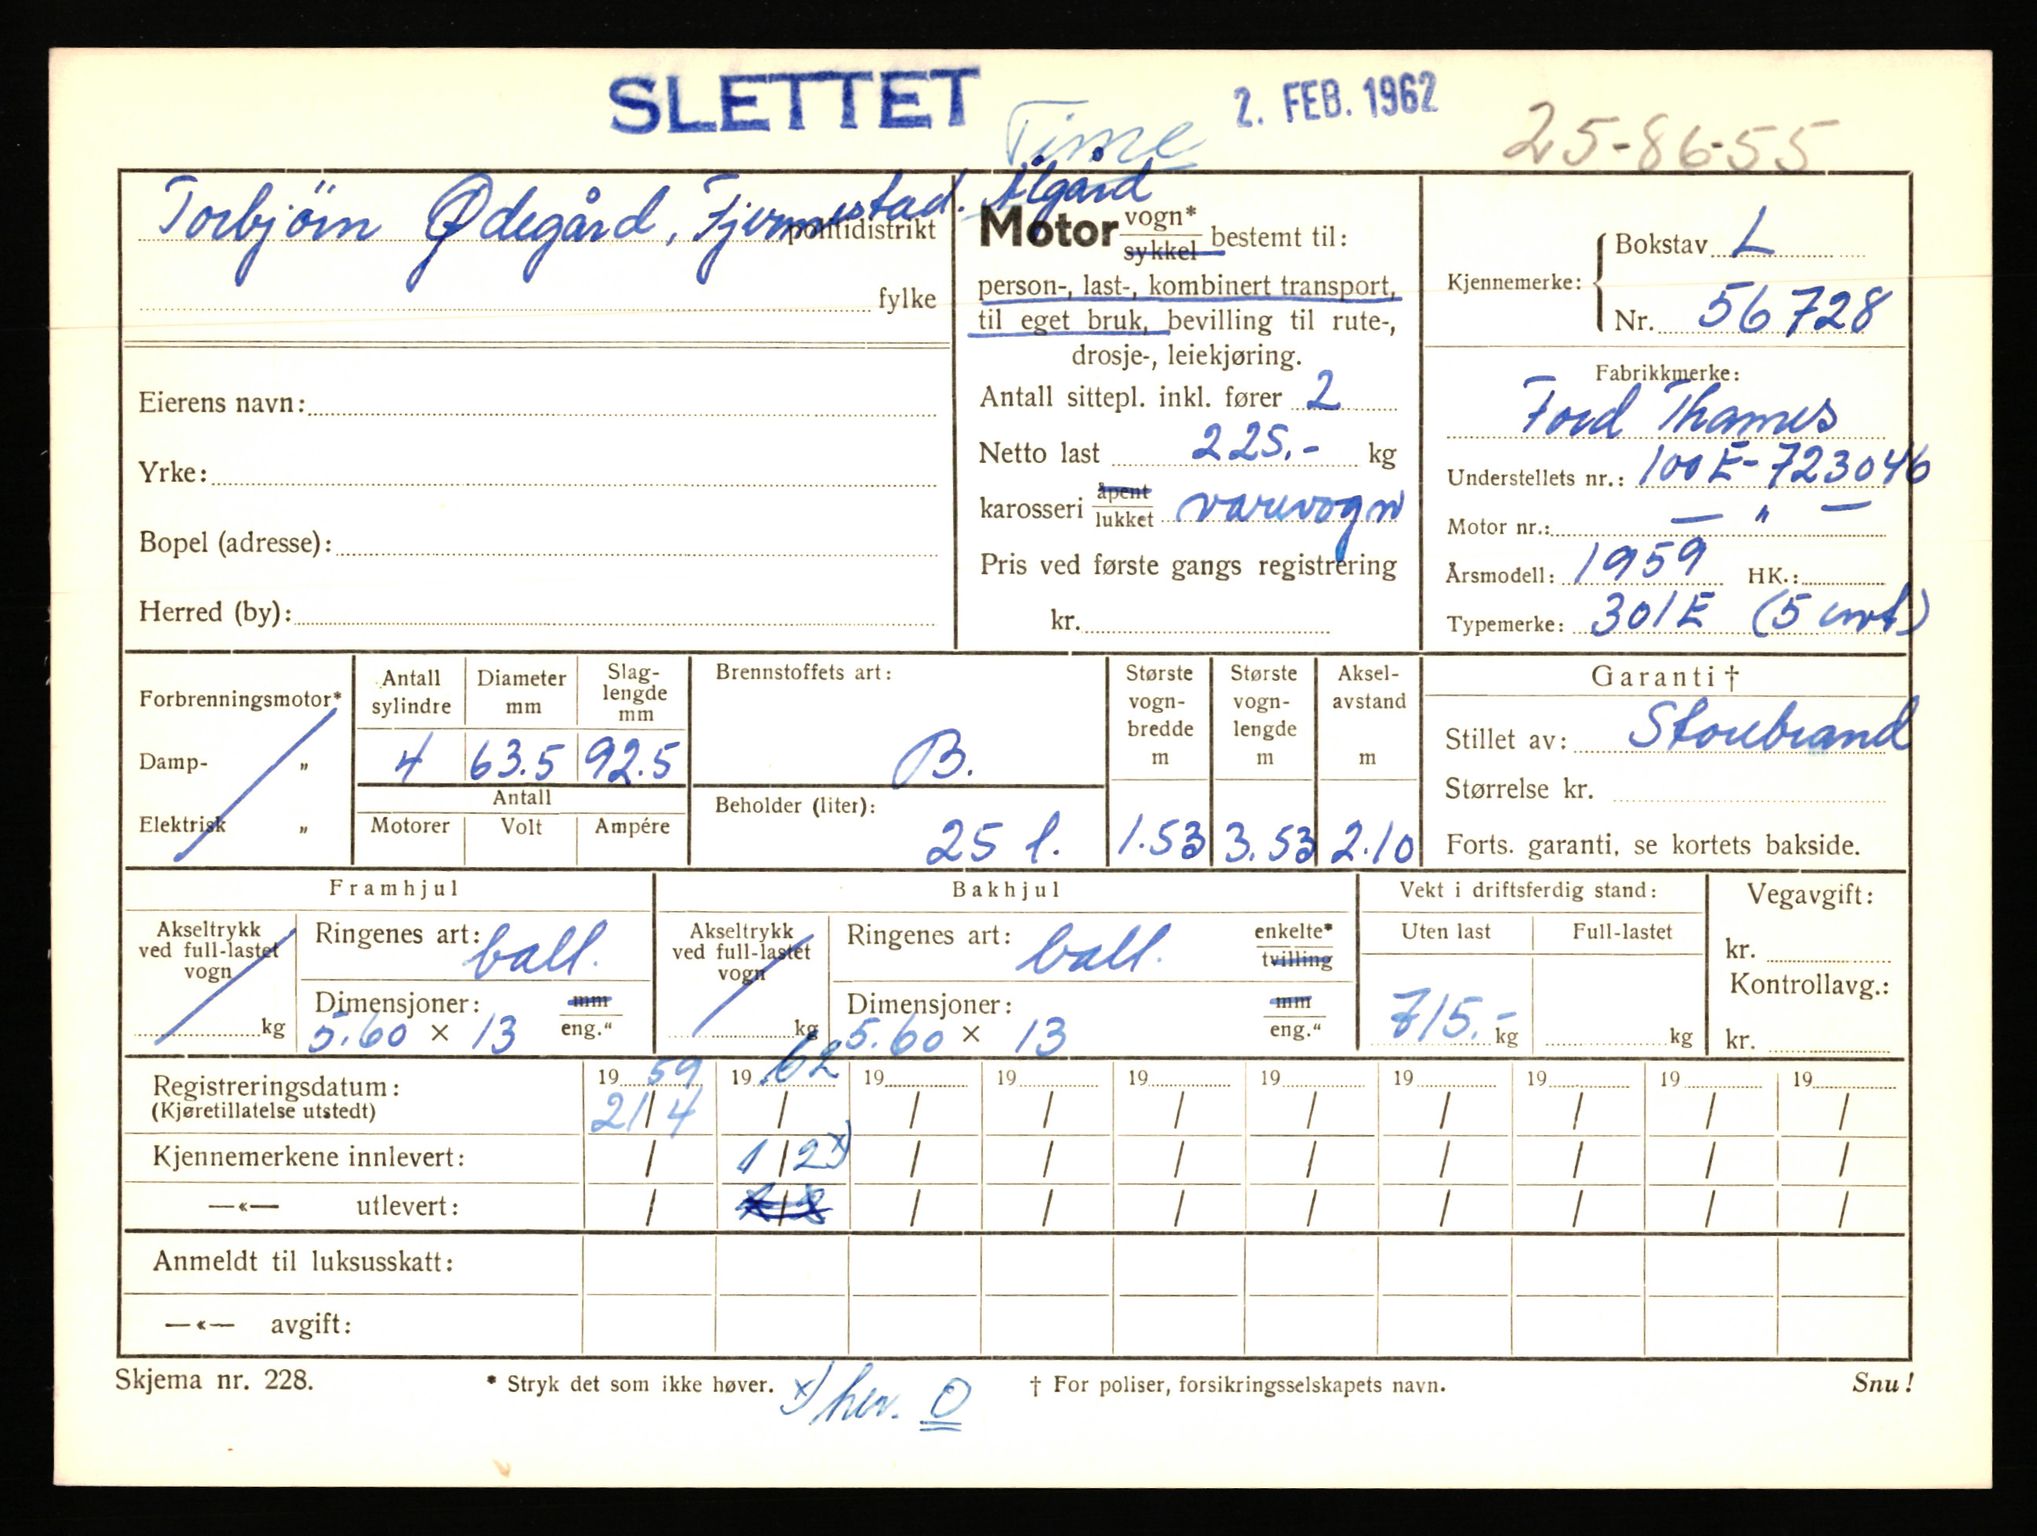 SLETTET 2. FEB. 1962
Time
25-86-55
Torbjörn Ødegård, Fjermestad. Ålgård
politidistrikt
fylke
Eierens navn:
Yrke:
Bopel (adresse):
Herred (by):
Motor vogn* sykkel bestemt til:
person-, last-, kombinert transport,
til eget bruk, bevilling til rute-,
drosje-, leiekjøring.
Antall sittepl. inkl. fører 2
Netto last 225.- kg
karosseri åpent lukket varevogn
Pris ved første gangs registrering
kr.
Kjennemerke: Bokstav L
Nr. 56728
Fabrikkmerke:
Ford Thames
Understellets nr.: 100E-723046
Motor nr.: — " —
Årsmodell: 1959 HK.:
Typemerke: 301E (5 cwt)
Forbrenningsmotor*
Damp- „
Elektrisk „
Antall sylindre Diameter mm Slaglengde mm
4 63.5 92.5
Antall
Motorer Volt Ampére
Brennstoffets art:
B.
Beholder (liter):
25 l.
Største vognbredde m Største vognlengde m Akselavstand m
1.53 3.53 2.10
Garanti †
Stillet av: Storebrand
Størrelse kr.
Forts. garanti, se kortets bakside.
Framhjul
Akseltrykk ved full-lastet vogn
kg
Ringenes art: ball.
Dimensjoner: mm eng.“
5.60 × 13
Bakhjul
Akseltrykk ved full-lastet vogn
kg
Ringenes art: ball. enkelte* tvilling
Dimensjoner: mm eng.“
5.60 × 13
Vekt i driftsferdig stand:
Uten last Full-lastet
715.- kg kg
Vegavgift:
kr.
Kontrollavg.:
kr.
Registreringsdatum: 19 59 19 62 19 19 19 19 19 19 19 19
(Kjøretillatelse utstedt) 21/4 / / / / / / / / /
Kjennemerkene innlevert: / 1/2 x) / / / / / / / /
—«— utlevert: / / / / / / / / /
Anmeldt til luksusskatt:
—«— avgift:
Skjema nr. 228. * Stryk det som ikke høver. † For poliser, forsikringsselskapets navn. Snu!
x) her. O